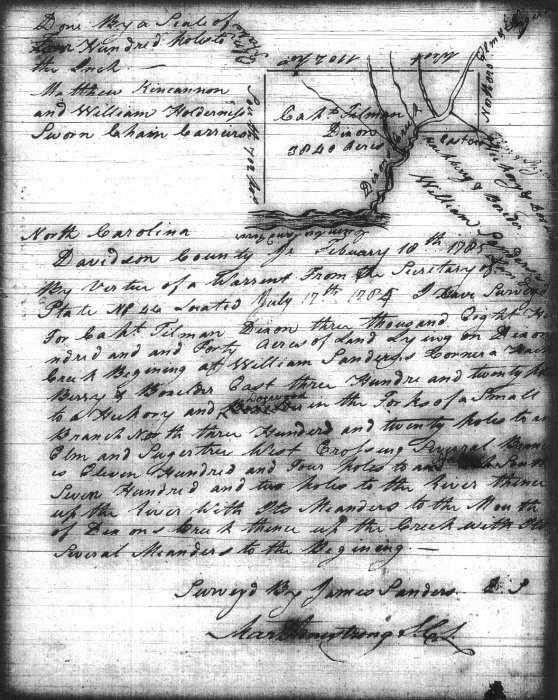 Done By a Scale of
Four Hundred Poles to
the Inch. —
Matthew Kincannon
and William Holderness
Sworn Chain Carrers
Capt Tilman
Dixon
3840 acres
William Sanders
North Carolina
Davidson County Febuary 18th 1785
By Vertue of a Warrent From the Secretary of
State No 40 Located July 17th 1784 I Have Surveyd
For Capt Tilman Dixon three thousand Eight Hu
ndred and and Forty acres of Land Lying on Dixons
Creek Begining at William Sanders's Corner a Hack
Berry & Boxelder East three Hundre and twenty Poles
to a Hickory and Dogwood in the Forks of a Small
Branch North three Hundred and twenty Poles to an
Elm and Sugertree West Crossing Several Bran
es Eleven Hundred and Four Poles to South
Seven Hundred and two Poles to the River thence
up the River With Its Meanders to the Mouth
of Dixons Creek thence up the Creek with Its
Several Meanders to the Begining. —
Surveyd By James Sanders D S
Mar Armstrong